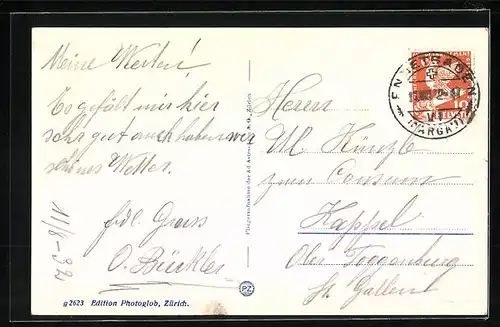 Meine Werten!
Es gefällt mir hier
sehr gut auch haben wir
schönes Wetter.
frdl. Gruss
O. Bückler
11/8-32
g 2623 Edition Photoglob, Zürich.
Fliegeraufnahme der Ad Astra-Aero A.-G., Zürich
PZ
ENNETBADEN
VII
(AARGAU)
10
Herrn
Ul. Künzle
zum Consum
Kappel
Ober Toggenburg
St. Gallen